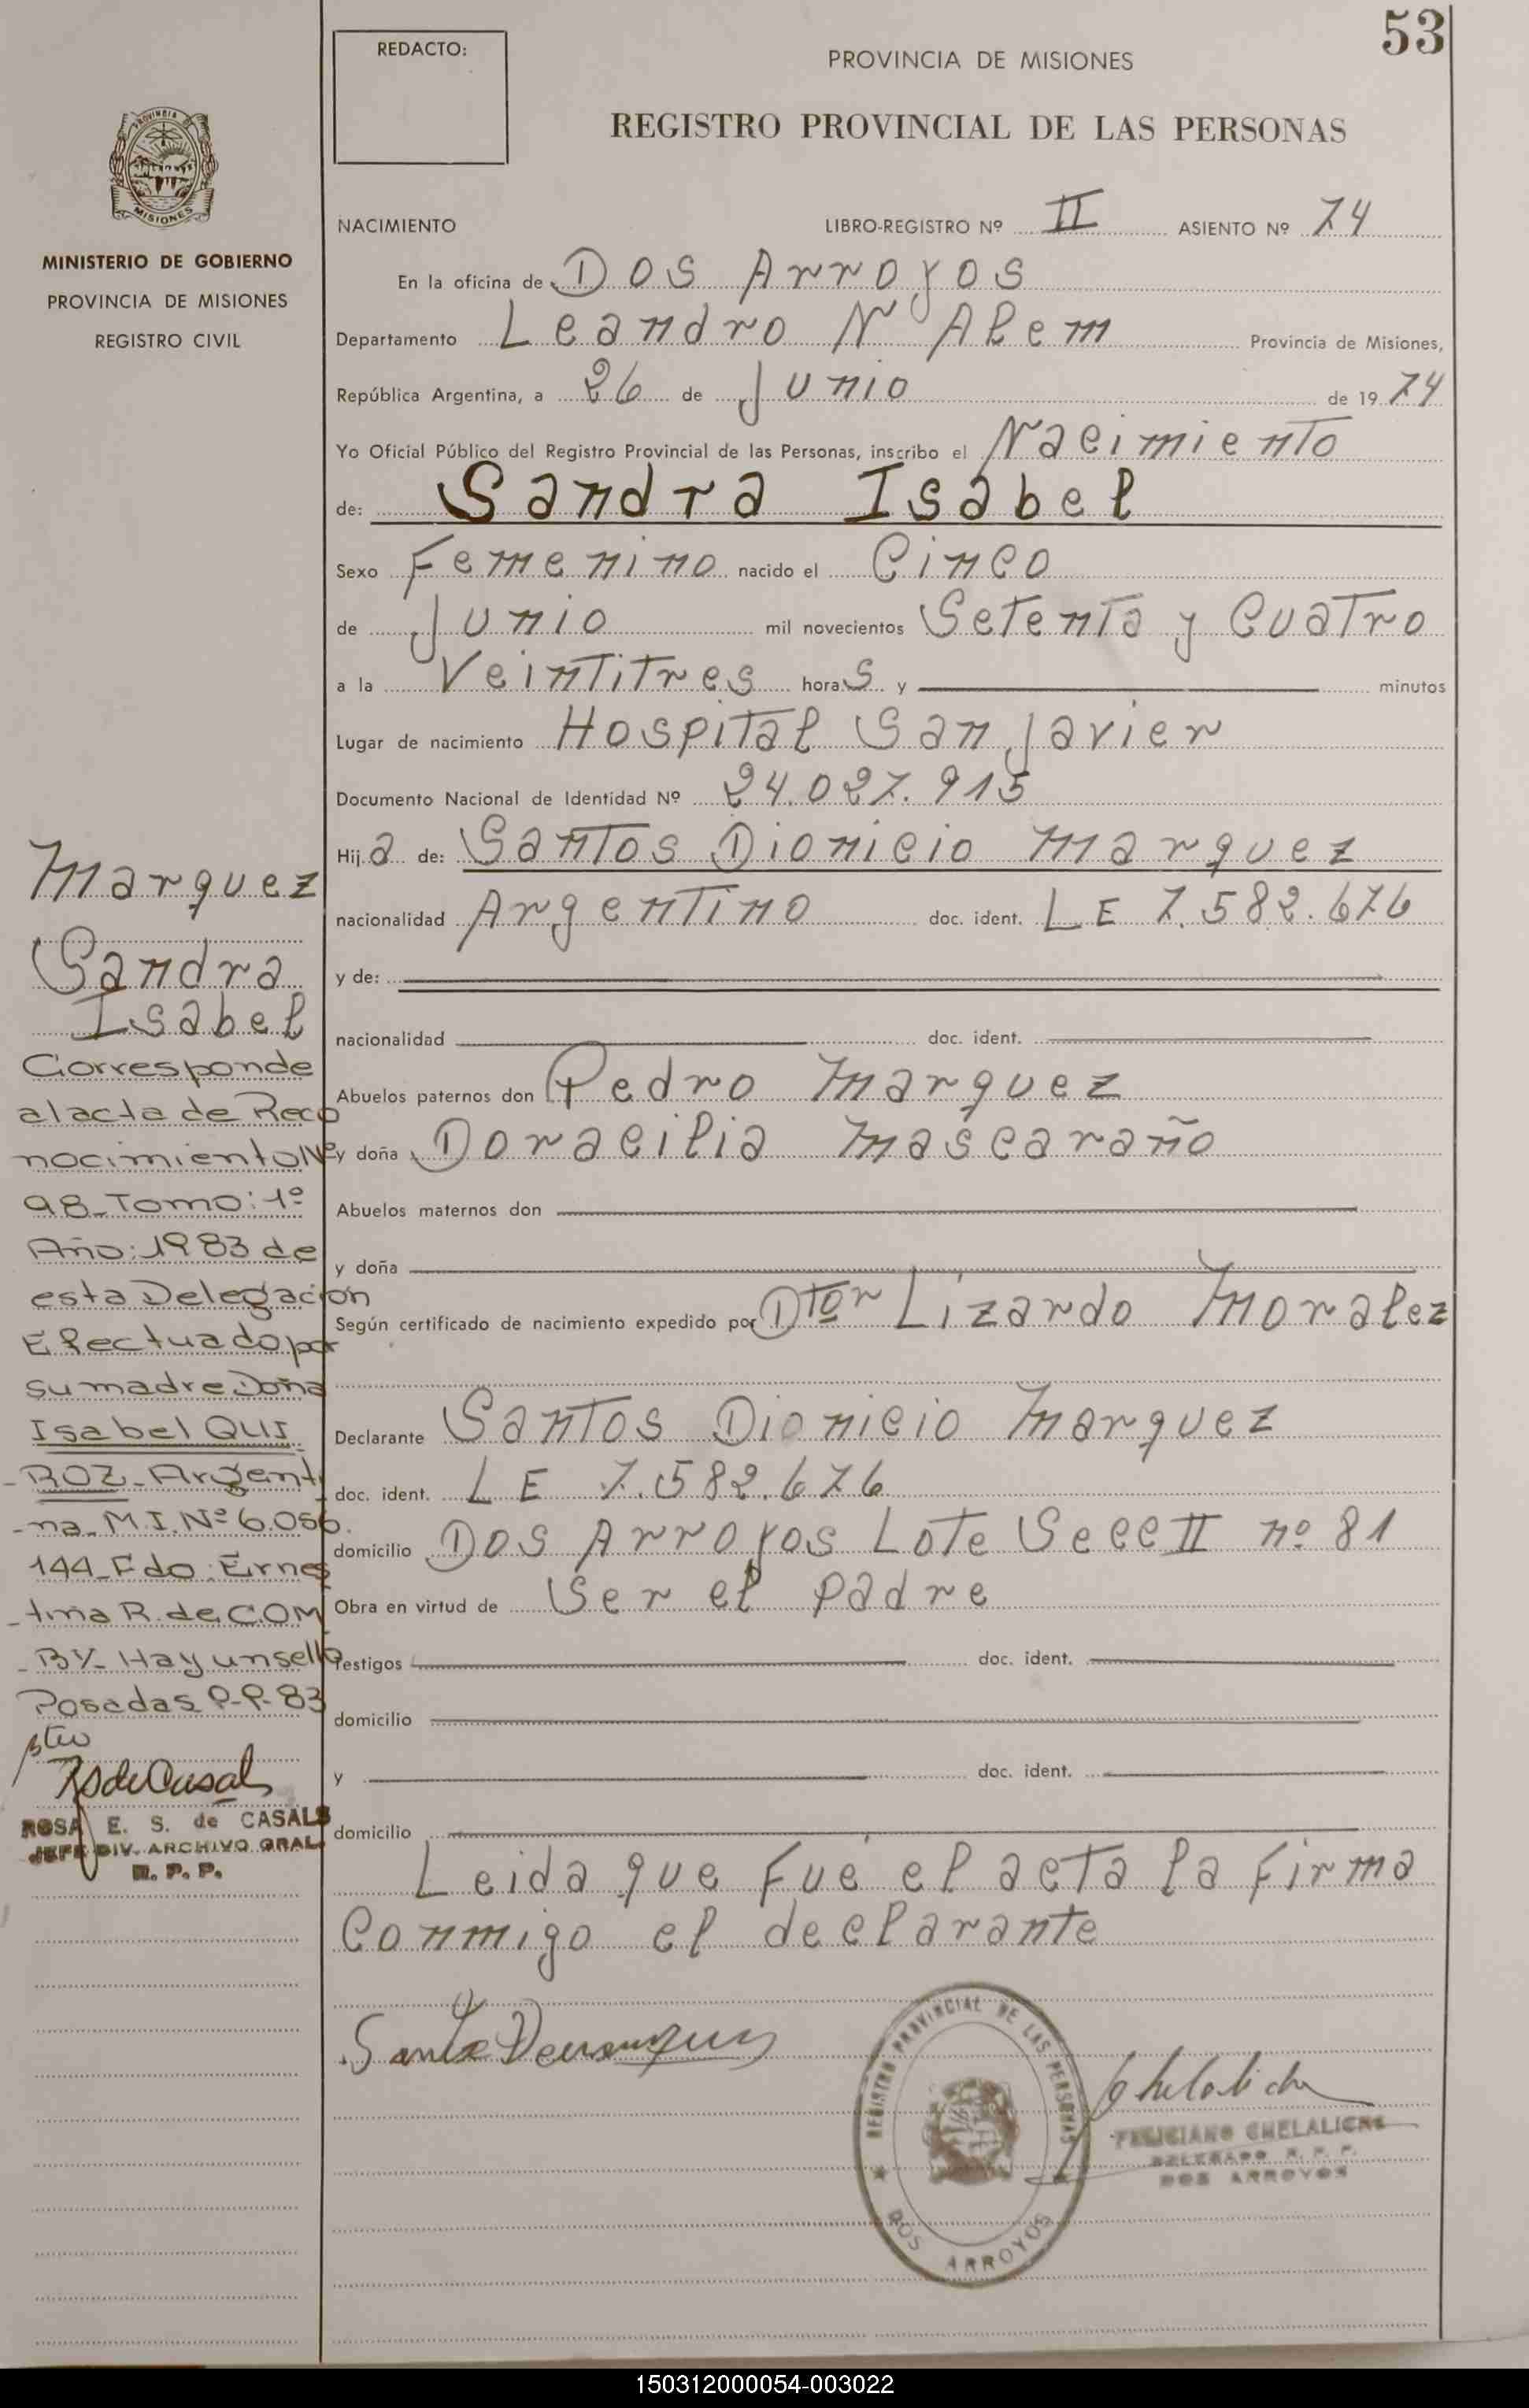 53
REDACTO:
PROVINCIA DE MISIONES
REGISTRO PROVINCIAL DE LAS PERSONAS
PROVINCIA DE
MISIONES
MINISTERIO DE GOBIERNO
PROVINCIA DE MISIONES
REGISTRO CIVIL
NACIMIENTO LIBRO-REGISTRO Nº II ASIENTO Nº 74
En la oficina de Dos Arroyos
Departamento Leandro N Alem Provincia de Misiones,
República Argentina, a 26 de Junio de 1974
Yo Oficial Público del Registro Provincial de las Personas, inscribo el Nacimiento
de: Sandra Isabel
Sexo Femenino nacido el Cinco
de Junio mil novecientos Setenta y Cuatro
a la Veintitres horas y minutos
Lugar de nacimiento Hospital San Javier
Documento Nacional de Identidad Nº 24.027.915
Hija de: Santos Dionicio Marquez
nacionalidad Argentino doc. ident. LE 7.582.676
y de:
nacionalidad doc. ident.
Abuelos paternos don Pedro Marquez
y doña Doracilia Mascaraño
Abuelos maternos don
y doña
Según certificado de nacimiento expedido por Dtor Lizardo Moralez
Declarante Santos Dionicio Marquez
doc. ident. LE 7.582.676
domicilio Dos Arroyos Lote Secc II nº 81
Obra en virtud de Ser el padre
Testigos doc. ident.
domicilio
y doc. ident.
domicilio
Leida que fué el acta la firma
Conmigo el declarante
Marquez
Sandra
Isabel
Corresponde
al acta de Reco
nocimiento Nº
98_Tomo: 1º
Año: 1983 de
esta Delegación
Efectuado por
su madre Doña
Isabel QUI
-ROZ-Argenti
-na_M.I.Nº 6.056.
144_Fdo: Ernes
-tina R. de COM
-BY- Hay un sello
Posadas 9-9-83
RSdeCasals
ROSA E. S. de CASALS
JEFE DIV. ARCHIVO GRAL.
R. P. P.
REGISTRO PROVINCIAL DE LAS PERSONAS
DOS ARROYOS
Chelalich
FELICIANO CHELALICHE
DELEGADO R. P. P.
DOS ARROYOS
150312000054-003022